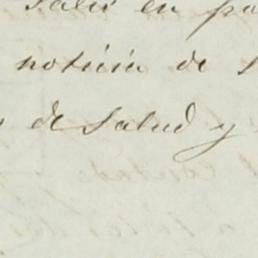 salió en pa
noticia de S
de Salud y